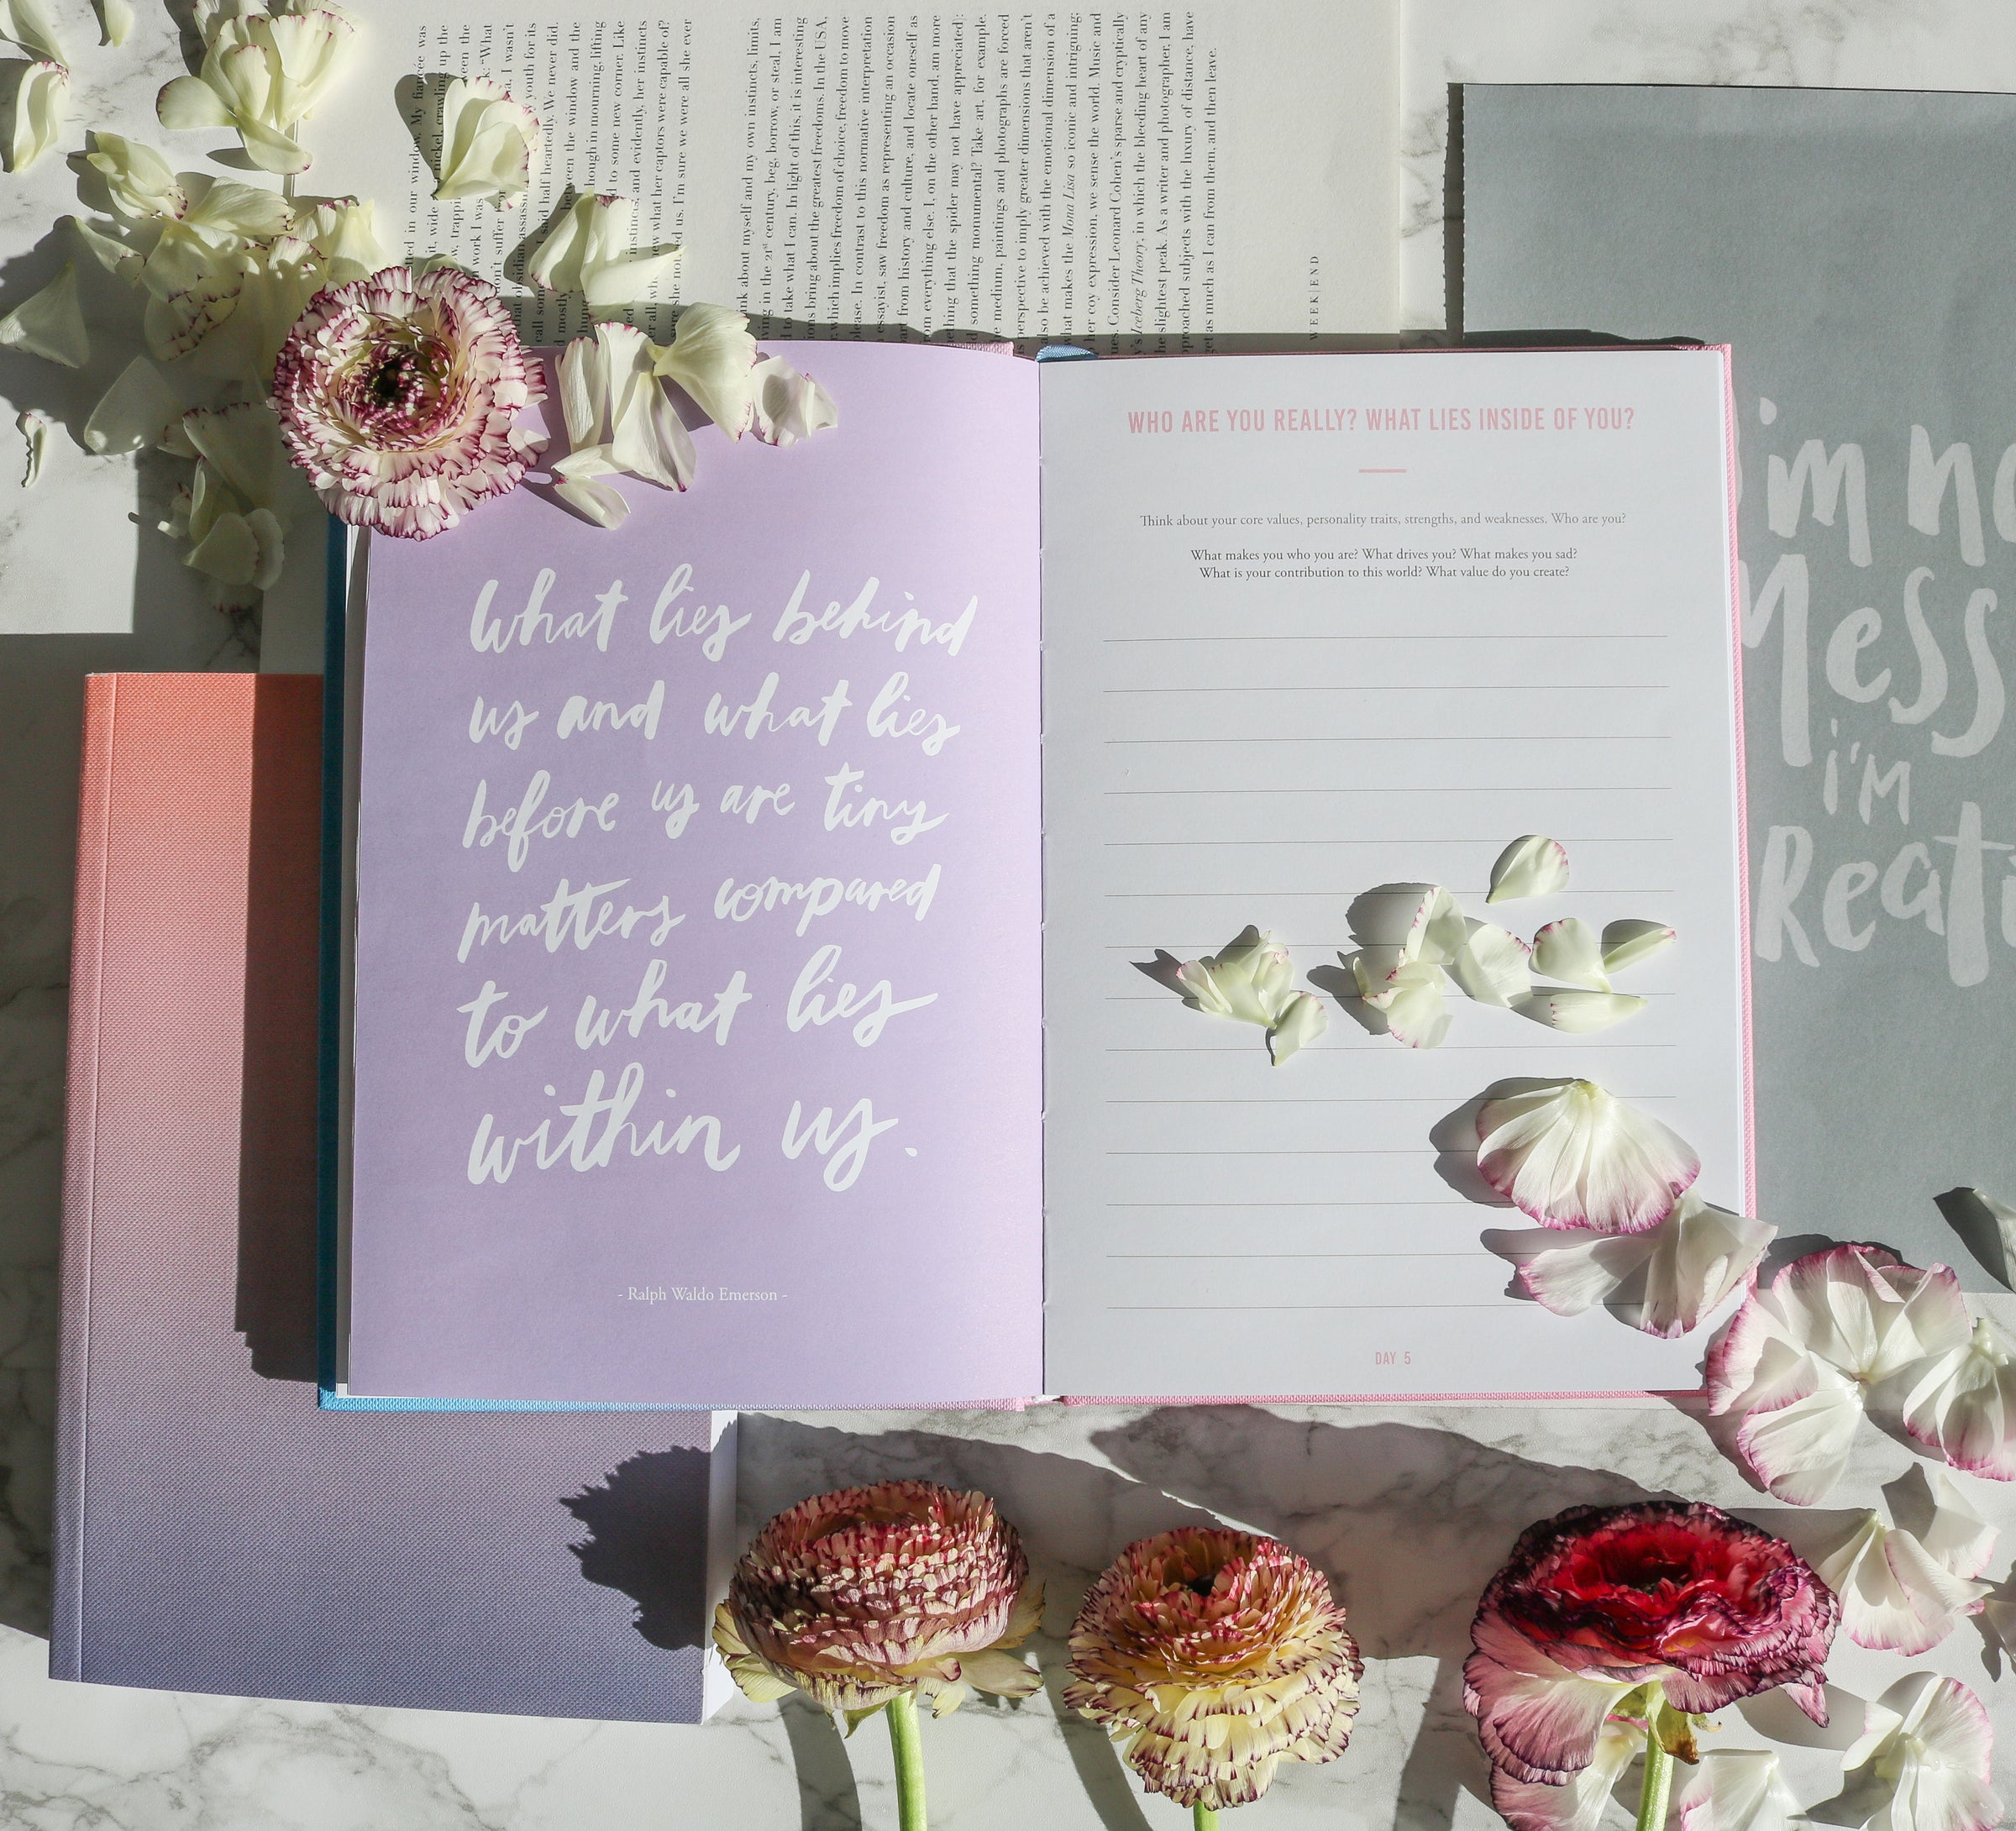 in our window. My fiancée was
it, wide nickel, crawling up the
the
work I was “What
don't suffer I wasn't
that obsidian youth for its
call I said half heartedly. We never did.
mostly between the window and the
in mourning, lifting
to some new corner. Like
instinct, and evidently, her instincts
what her captors were capable of?
she us. I'm sure we were all she ever
about myself and my own instincts, limits,
in the 21st century, beg, borrow, or steal, I am
to take what I can. In light of this, it is interesting
bring about the greatest freedoms. In the USA,
which implies freedom of choice, freedom to move
In contrast to this normative interpretation
essayist, saw freedom as representing an occasion
from history and culture, and locate oneself as
everything else. I, on the other hand, am more
that the spider may not have appreciated):
something monumental? Take art, for example.
medium, paintings and photographs are forced
perspective to imply greater dimensions that aren't
be achieved with the emotional dimension of a
what makes the Mona Lisa so iconic and intriguing;
her coy expression, we sense the world. Music and
Consider Leonard Cohen's sparse and cryptically
Iceberg Theory, in which the bleeding heart of any
slightest peak. As a writer and photographer, I am
subjects with the luxury of distance, have
get as much as I can from them, and then leave.
WEEK|END
What lies behind
us and what lies
before us are tiny
matters compared
to what lies
within us.
- Ralph Waldo Emerson -
WHO ARE YOU REALLY? WHAT LIES INSIDE OF YOU?
Think about your core values, personality traits, strengths, and weaknesses. Who are you?
What makes you who you are? What drives you? What makes you sad?
What is your contribution to this world? What value do you create?
DAY 5
i'm
Mess
i'M